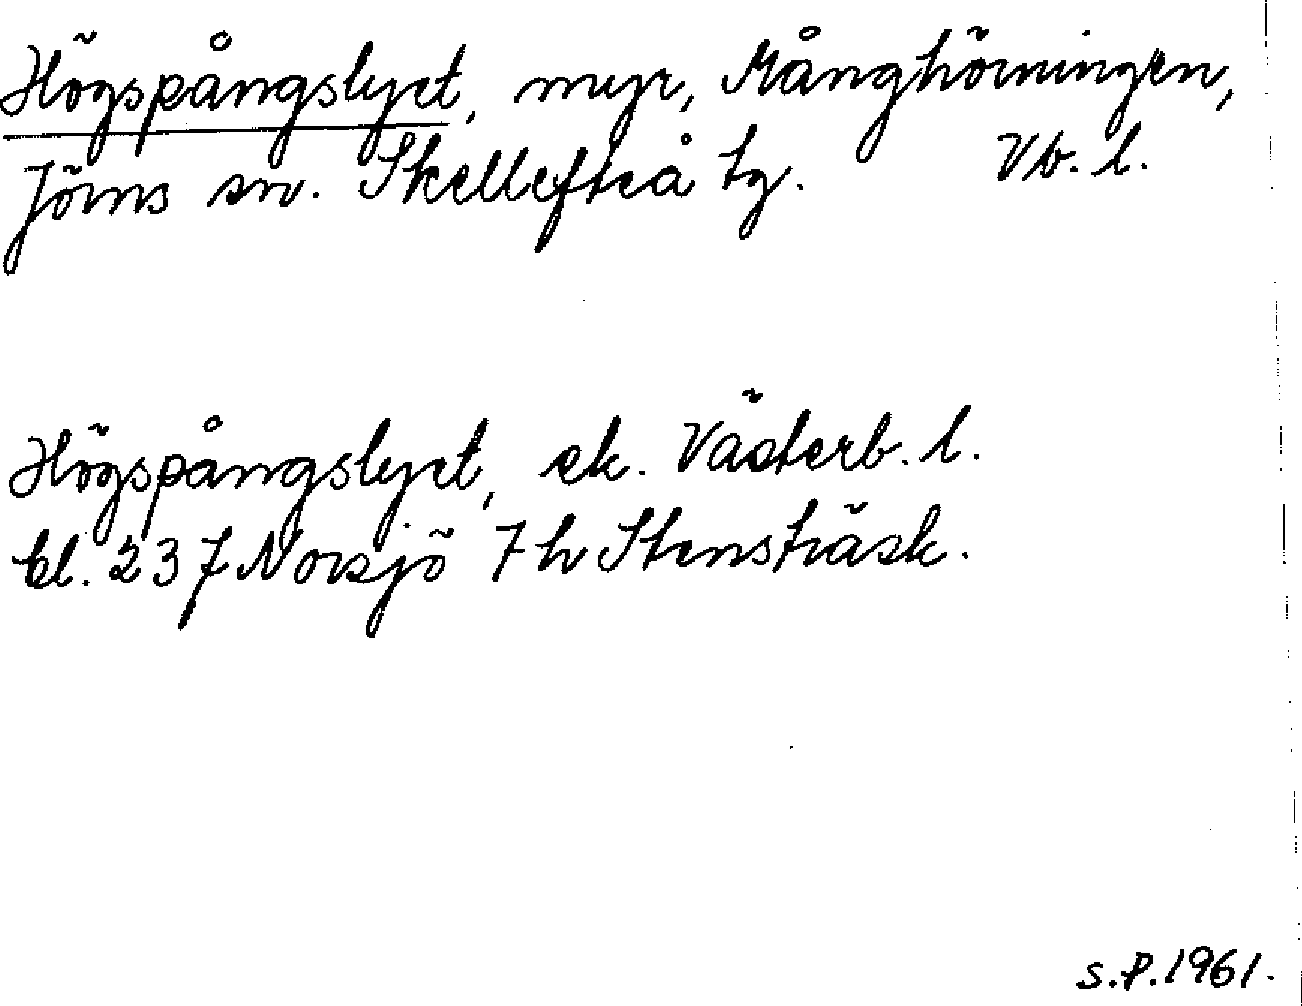 Högspångslyet, myr, Månghörningen,
Jörns sn. Skellefteå tg. Vb. l.
Högspångslyet, ek. Västerb. l.
bl. 237 Norsjö 7h Stensträsk.
S.P. 1961.